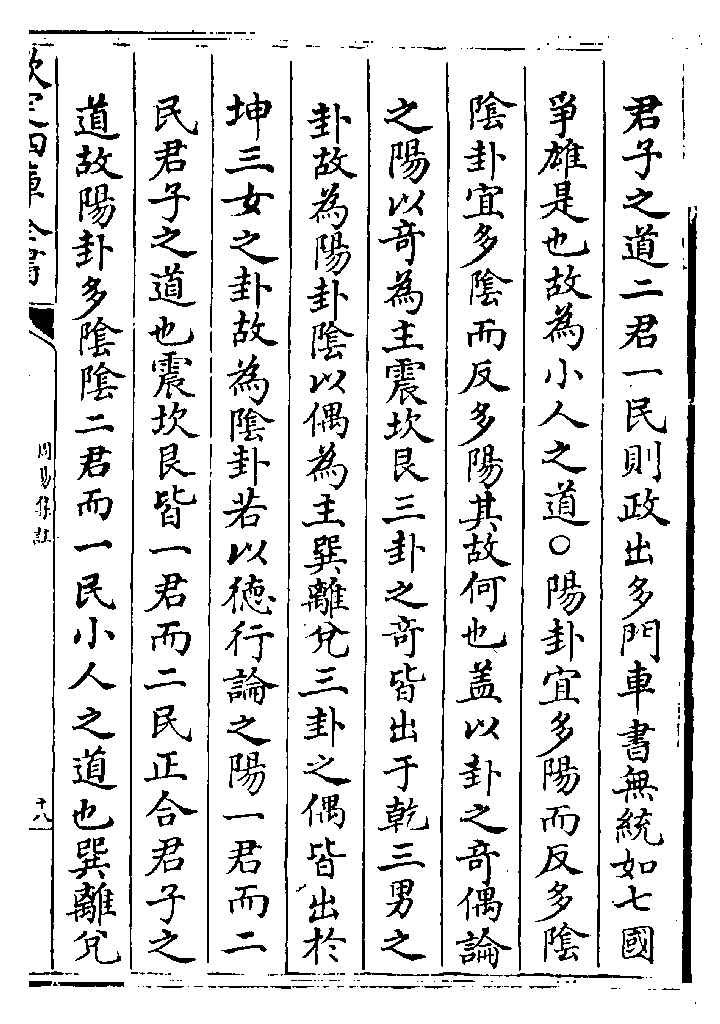 君子之道二君一民則政出多門車書無統如七國
爭雄是也故為小人之道○陽卦宜多陽而反多陰
陰卦宜多陰而反多陽其故何也盖以卦之竒偶論
之陽以竒為主震坎艮三卦之竒皆出于乾三男之
卦故為陽卦陰以偶為主巽離兌三卦之偶皆出於
坤三女之卦故為陰卦若以德行論之陽一君而二
民君子之道也震坎艮皆一君而二民正合君子之
道故陽卦多陰陰二君而一民小人之道也巽離兌
欽定四庫全書
周易集註
十八